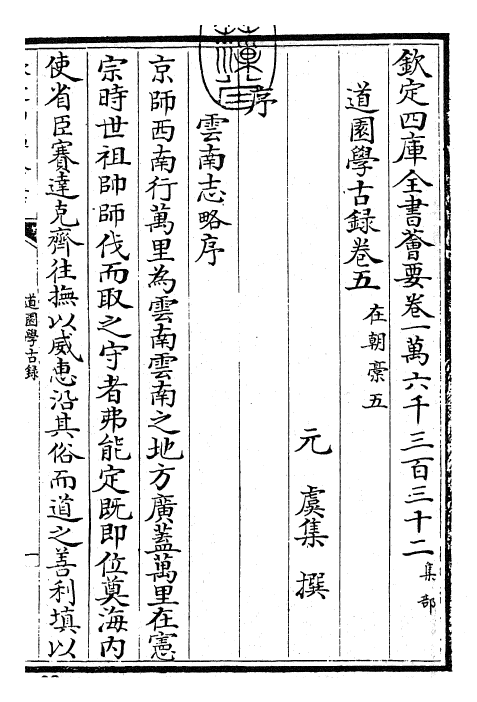 欽定四庫全書薈要卷一萬六千三百三十二 集部
道園學古録卷五 在朝藁五
元 虞集 撰
序
雲南志略序
京師西南行萬里為雲南雲南之地方廣蓋萬里在憲
宗時世祖帥師伐而取之守者弗能定既即位奠海内
使省臣賽達克齊往撫以威惠沿其俗而道之善利填以
道園學古録
一